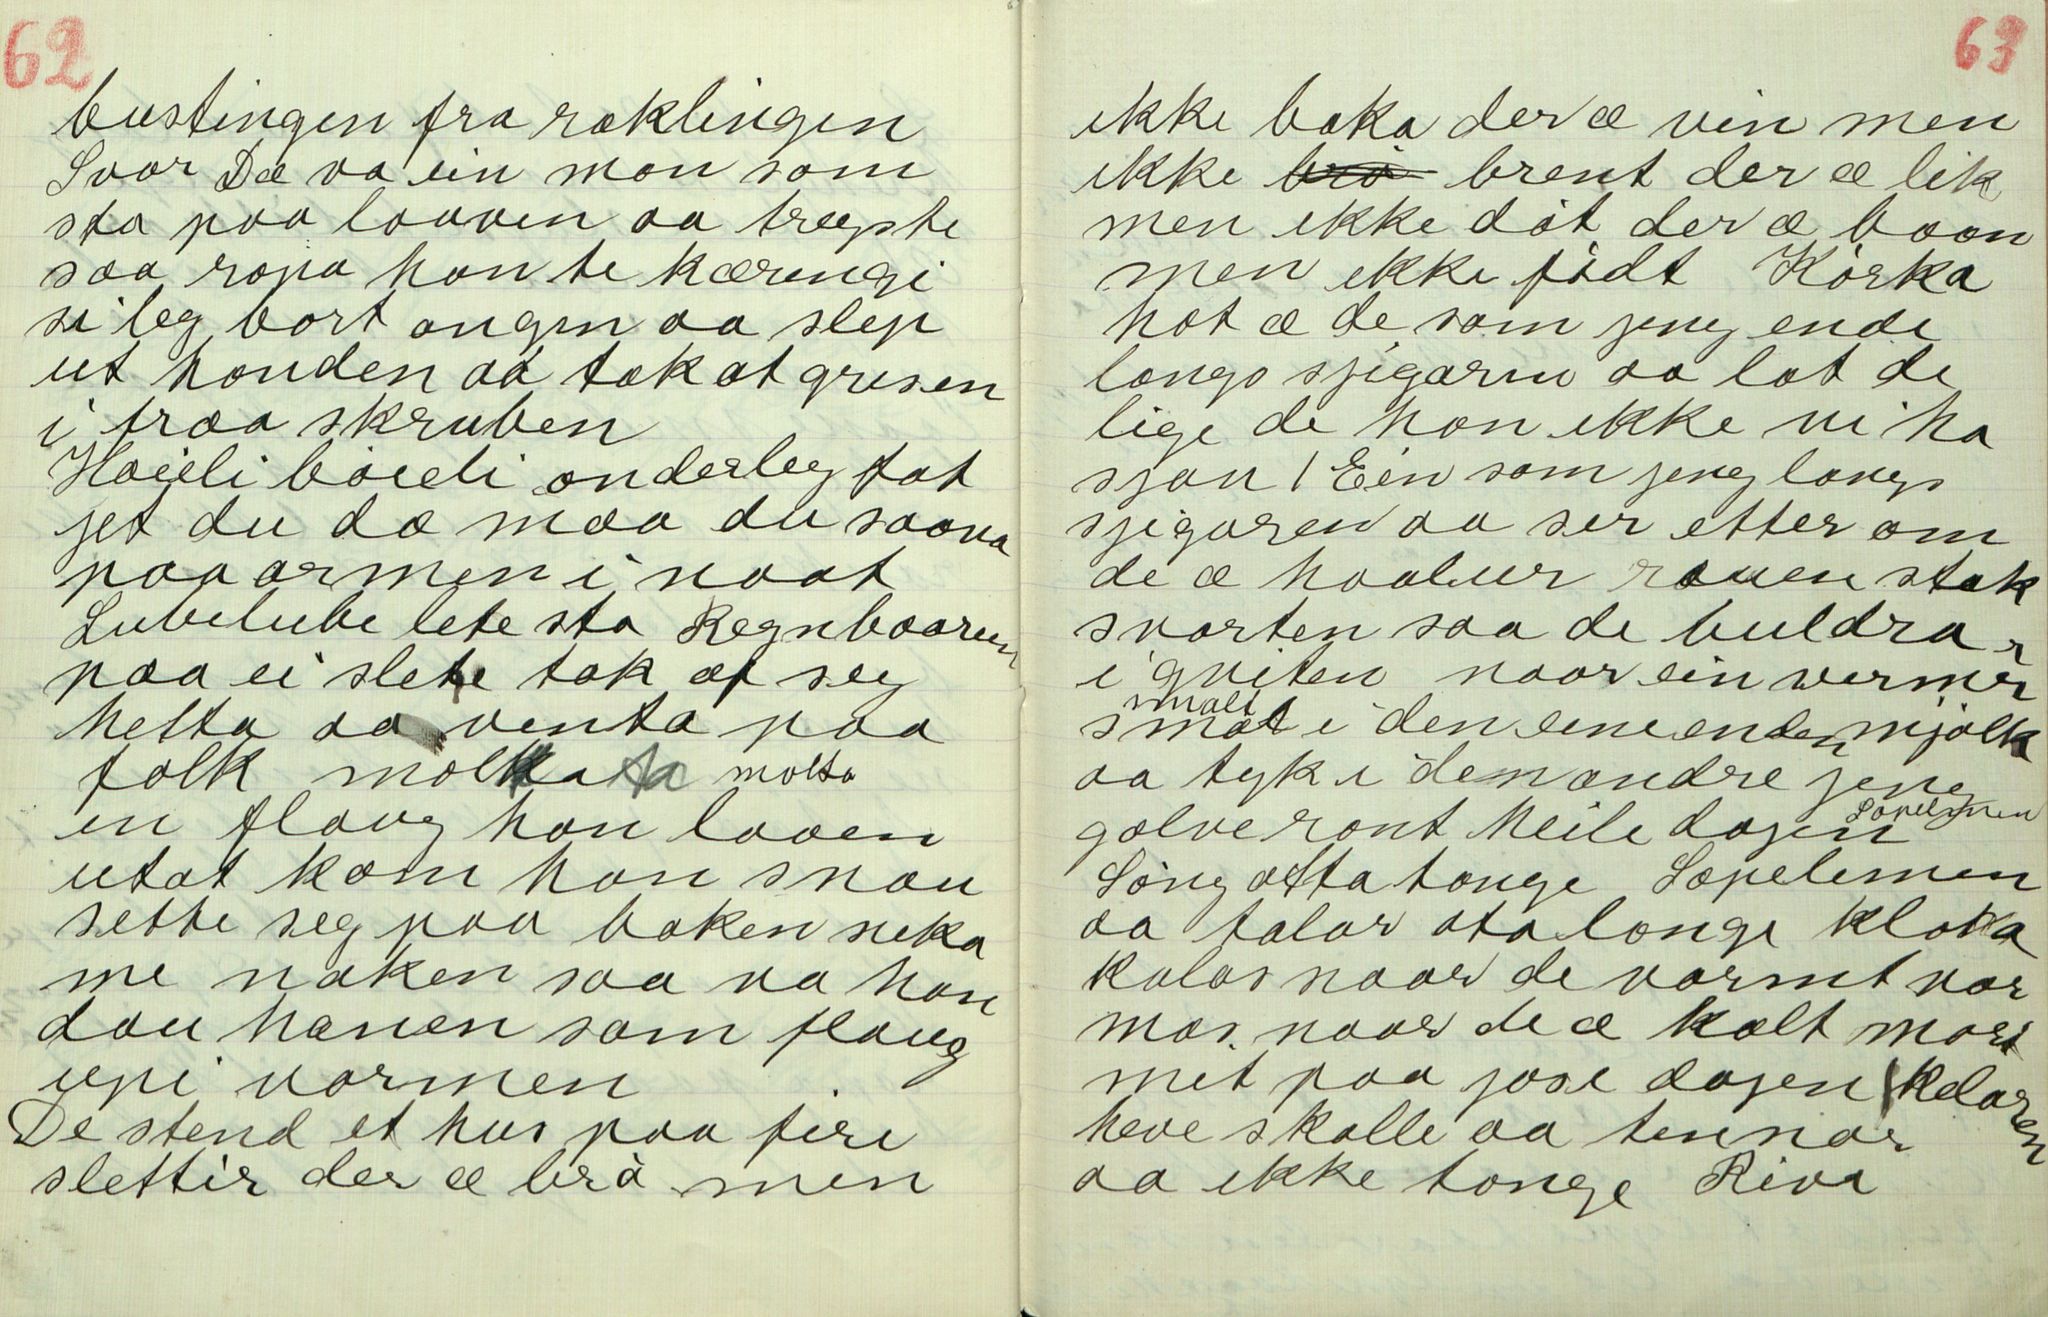 62
bustingen fra røklingen
Svar Dæ va ein man som
sto paa laaven aa treyste
saa ropa han te kærengi
si leg bort ongen aa slep
ut honden aa tak at grisen
i fraa skruben
Hoieli boieli onderleg fat
jet du dæ maa du saava
paa armen i naat
Lubelube lete sta Regnbaaren
paa ei slete tak af seg
hetta aa venta paa
folk molta
en flaug han laaen
utat kom han snau
sette seg paa baken neka
me naken saa va han
dau hanen som flaug
upi varmen
De stend et hus paa fire
slettir der æ brò men
63
ikke baka der æ vin men
ikke brent der æ lik
men ikke dòt der æ baan
men ikke fòdt Kòrka
hot æ de som jeng ende
langs sjigarin aa lat de
lige de han ikke vi ha
sjau / Ein som jeng langs
sjigaren aa ser etter om
de æ haaluur rauen stak
svarten saa de buldrar
i gviten naar ein vermer
smalt
smat i den eine enden mjølk
aa tyk i den andre jeng
golve ront heile dagen
Lopelemen
Lòng ofta tonge Lopelemen
aa talar ota longe kloka
Kalas naar de varmt var
mas. naar de æ kalt mort
met paa jose dagen / Kelaren
heve skalle aa tennar
aa ikke tonge Riva